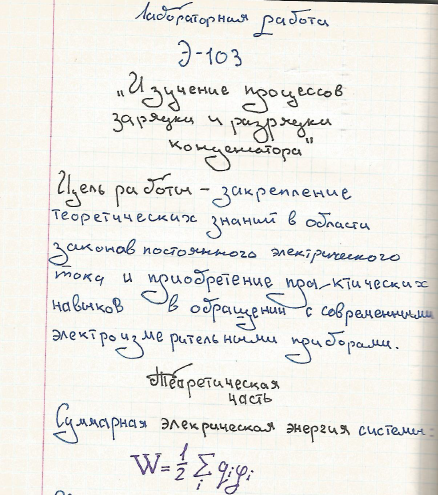 Лабораторная работа
Э-103
„Изучение процессов
зарядки и разрядки
конденсатора"
Цель работы - закрепление
теоретических знаний в области
законов постоянного электрического
тока и приобретение практических
навыков в обращении с современными
электроизмерительными приборами.
Теоретическая
часть
Суммарная элекрическая энергия системы:
W = 1/2 Σ_i q_i φ_i